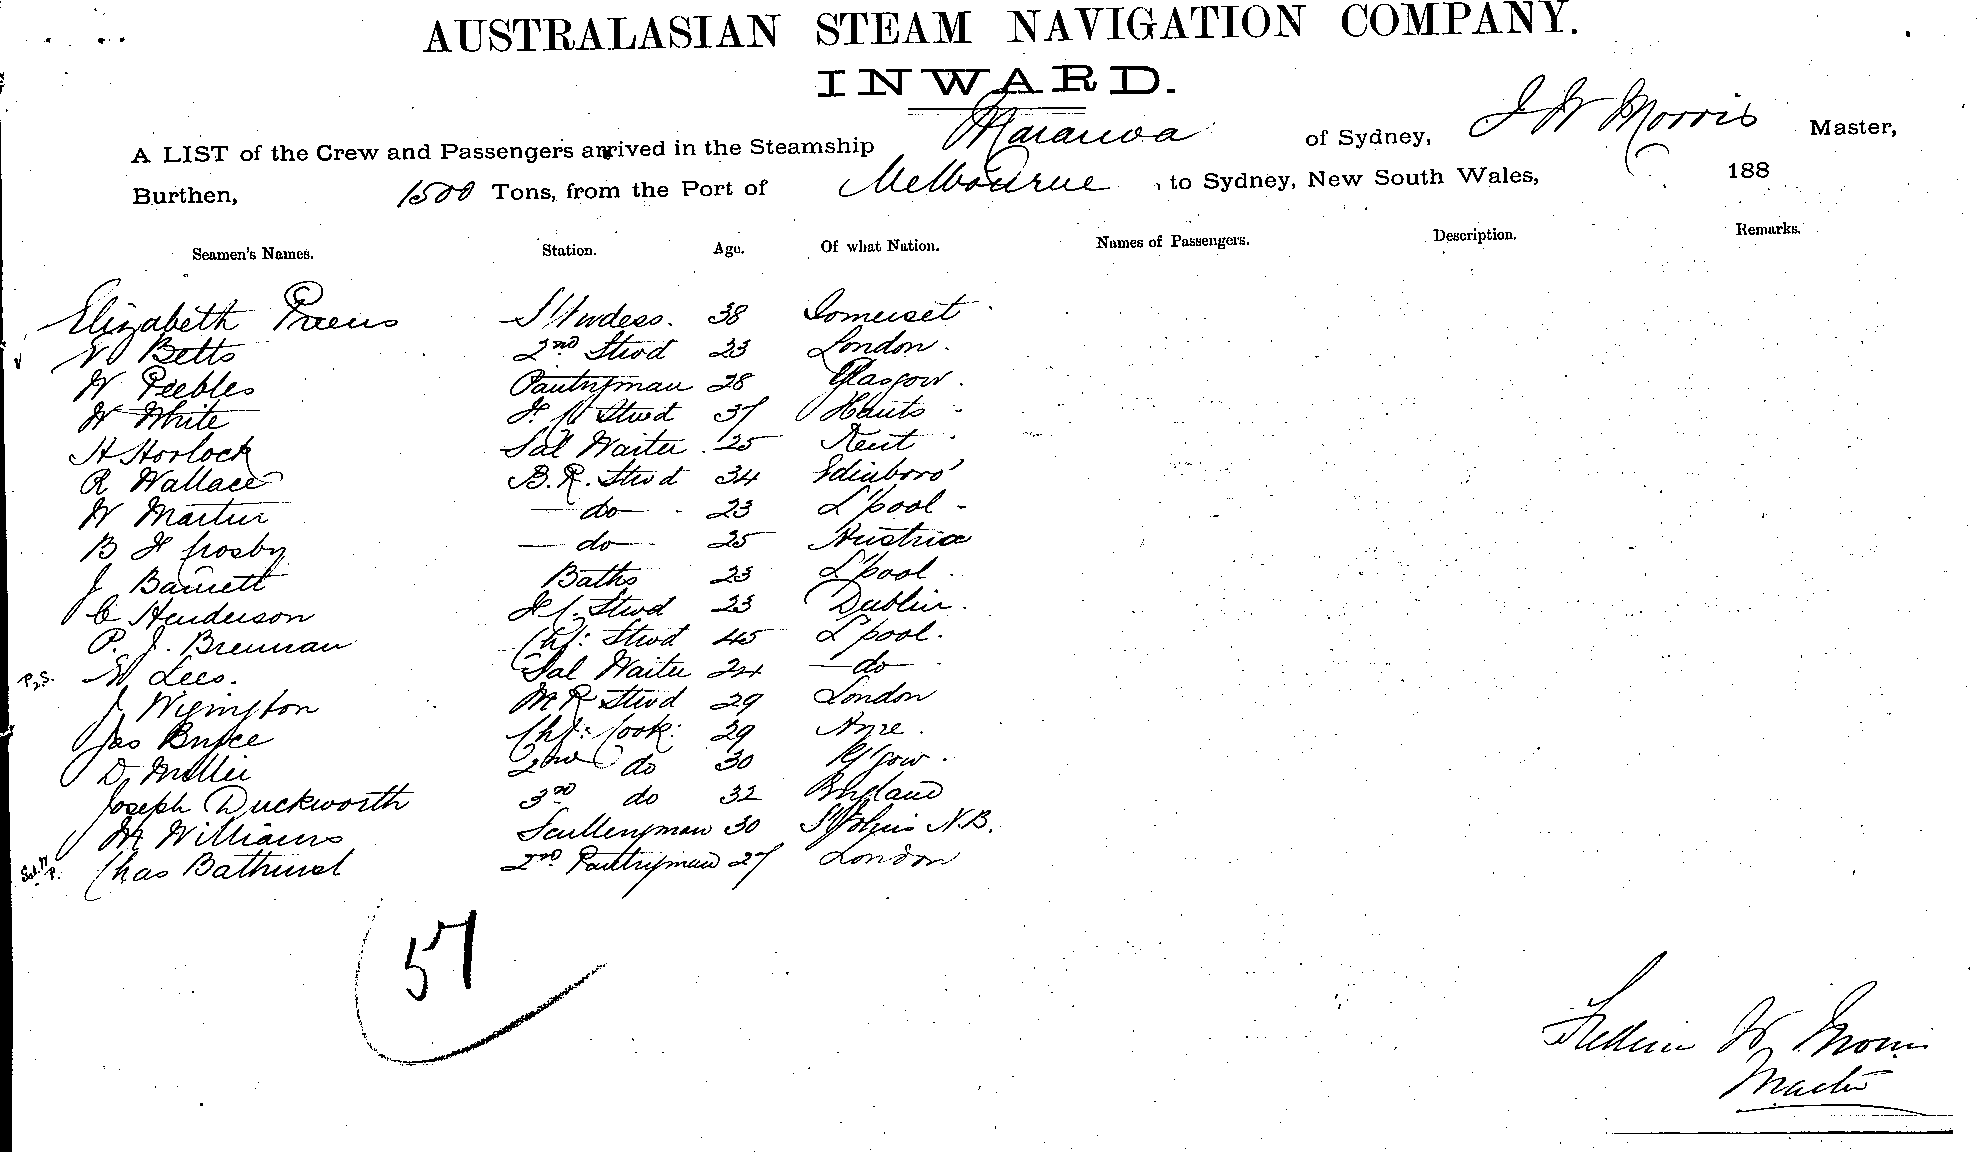 AUSTRALASIAN STEAM NAVIGATION COMPANY.
INWARD.
A LIST of the Crew and Passengers arrived in the Steamship Maranoa of Sydney, J W Morris Master,
Burthen, 1500 Tons, from the Port of Melbourne, to Sydney, New South Wales, 188
Seamen's Names. Station. Age. Of what Nation. Names of Passengers. Description. Remarks.
Elizabeth Stwdess. 38 Somerset
Betts 2nd Stwd 23 London.
W Peebles Pantryman 28 Glasgow.
W White Stwd 37 Hants
H Horlock Sal Waiter 25 Kent
R Wallace B.R. Stwd 34 Edinboro'
W Martin do 23 L'pool
B F Crosby do 25 Austria
J Barrett Baths 23 L'pool
C Henderson F C. Stwd 23 Dublin.
P. J. Brennan Chf: Stwd 45 L'pool.
P.2.S. W Lees. Sal Waiter 24 do
J Wigington M R Stwd 29 London
Jas Bryce Chf: Cook: 29 Ayre.
D. Miller 2nd do 30 G'gow.
Joseph Duckworth 3rd do 32 England
M Williams Scullengman 30 St Johns N.B.
Chas Bathurst 2nd Pantryman 27 London
57
W Morris
Master